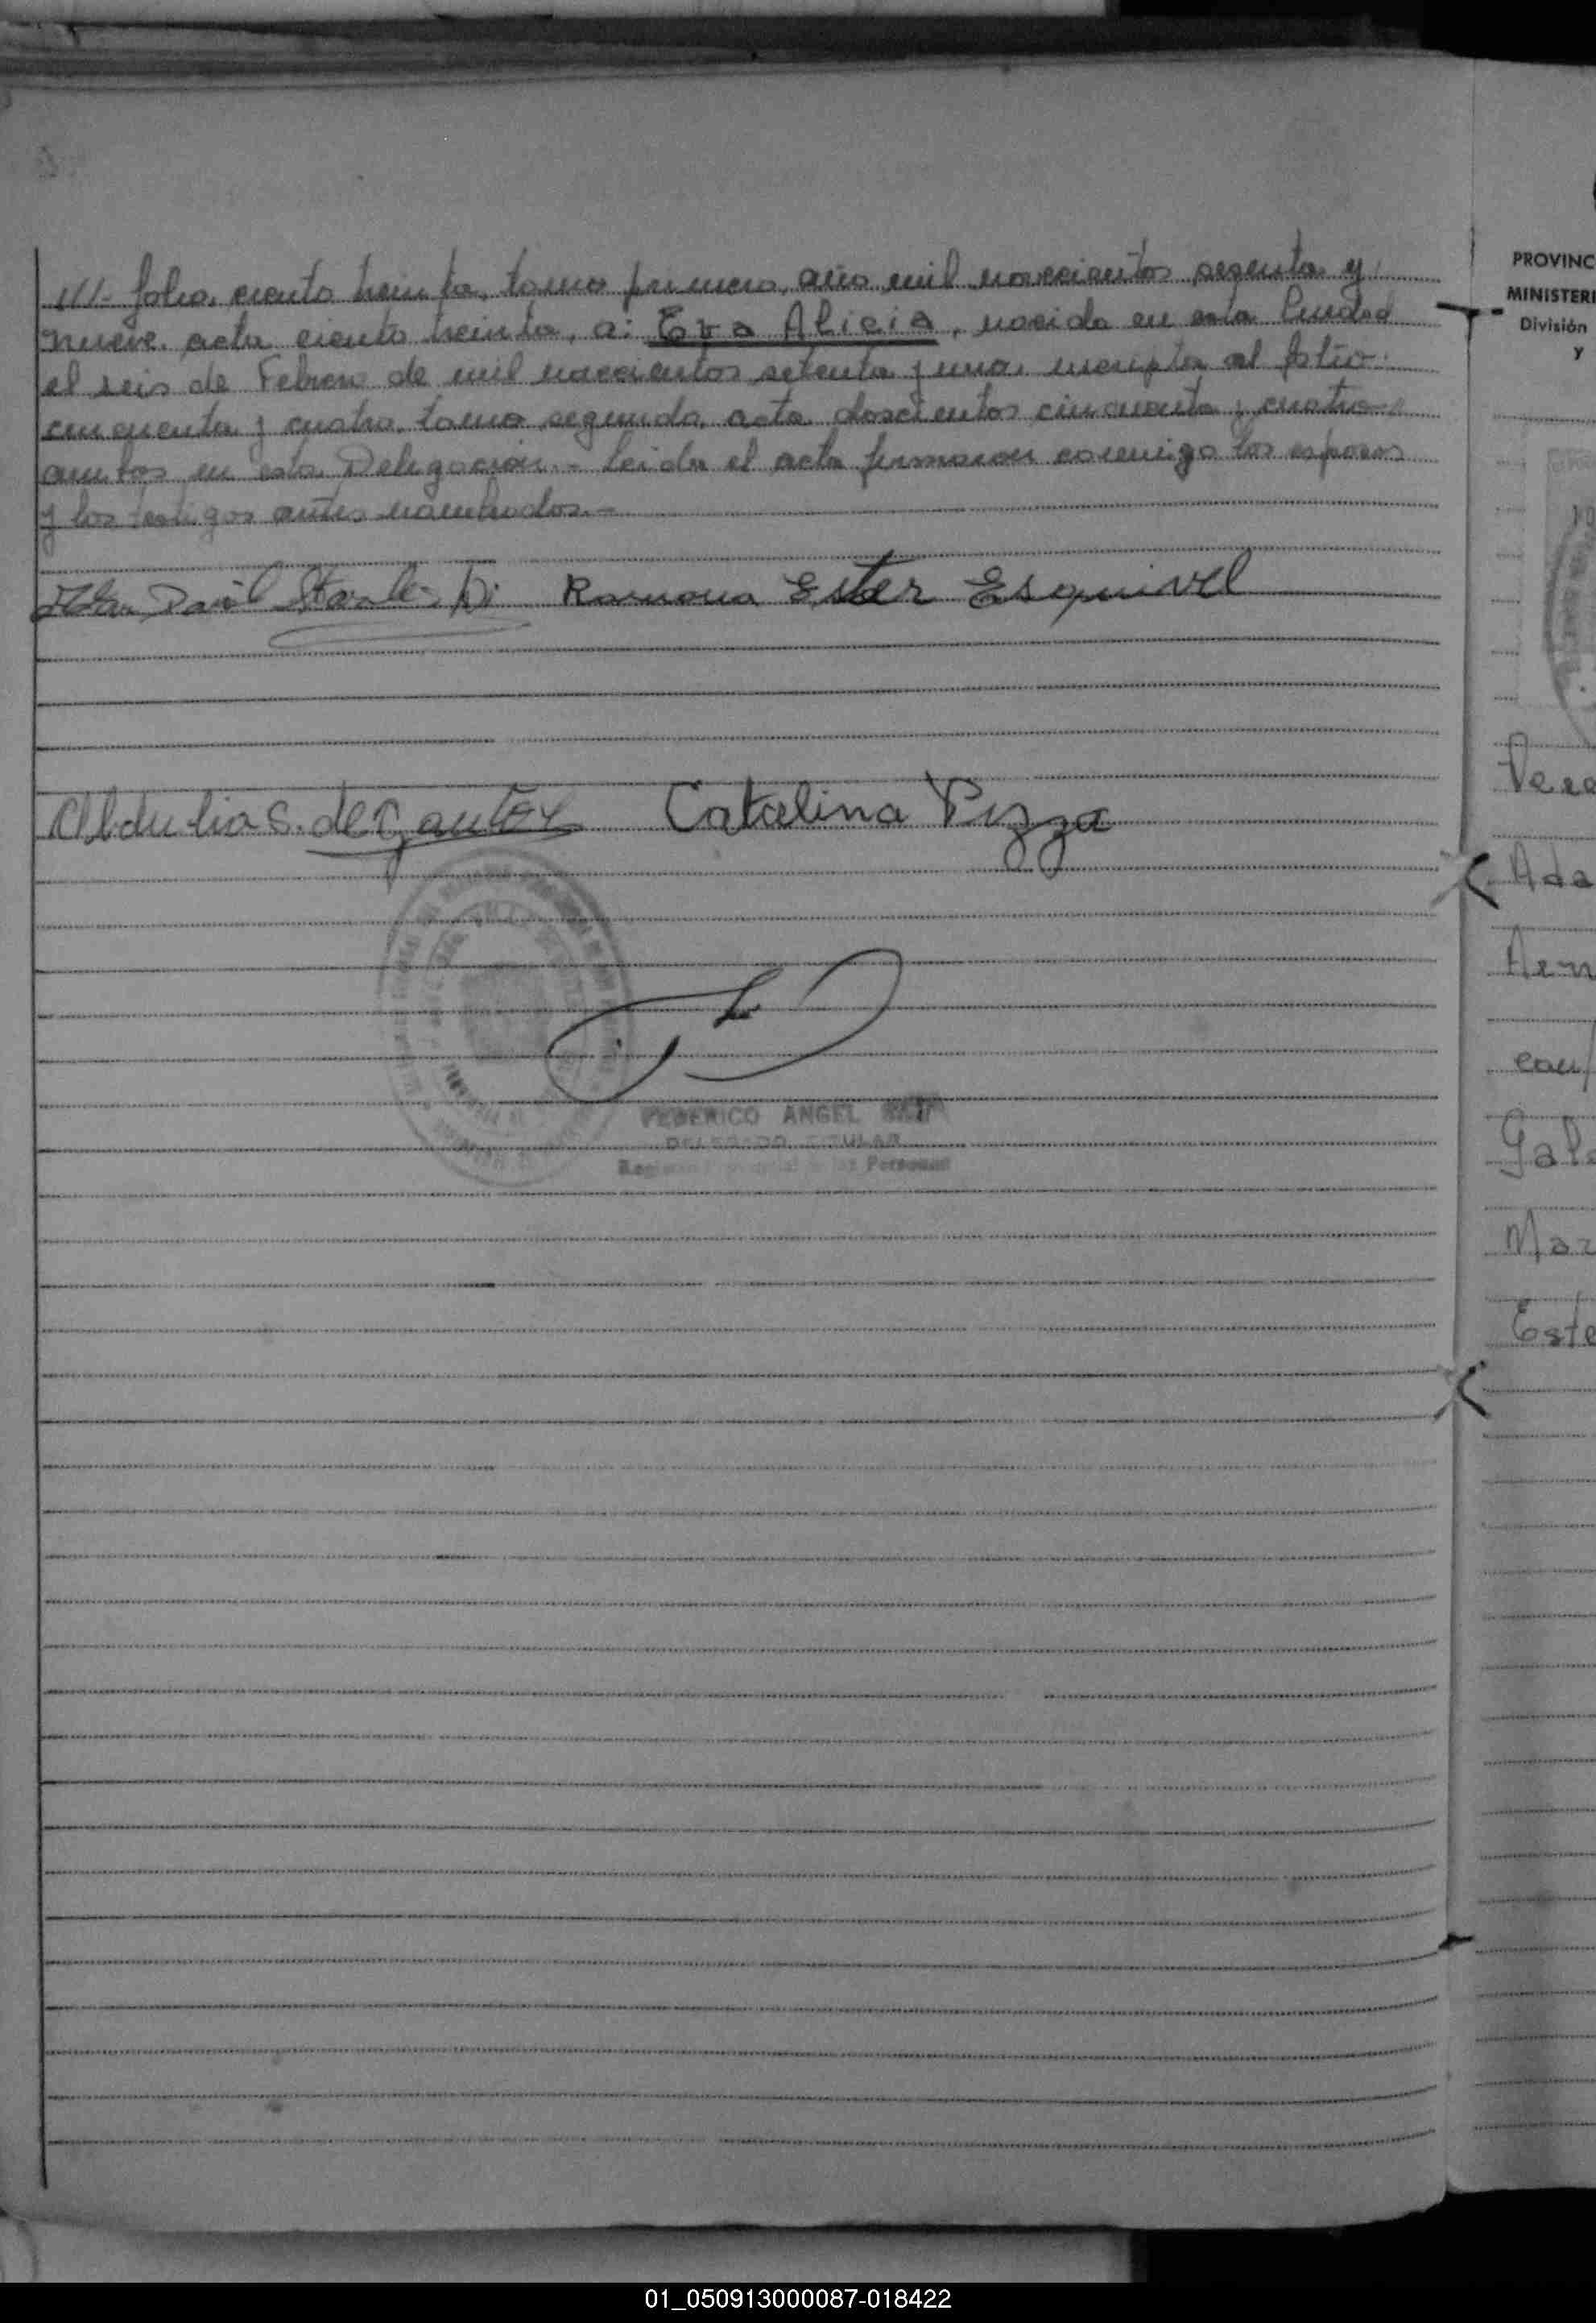 ///- folio, ciento treinta, tomo primero, año mil novecientos sesenta y
nueve, acta ciento treinta, a: Eva Alicia, nacida en esta Ciudad
el seis de Febrero de mil novecientos setenta y uno, inscripta al folio
cincuenta y cuatro, tomo segundo, acta doscientos cincuenta y cuatro
ambos en esta Delegación.- Leida el acta firmaron conmigo los esposos
y los testigos antes nombrados.-
David Ramona Ester Esquivel
Obdulia S. de Catalina Pizza
FEDERICO ANGEL
DELEGADO TITULAR
Personas
PROVINC
MINISTERI
División
y
Vera
Ada
Gale
Mar
Este
01_050913000087-018422